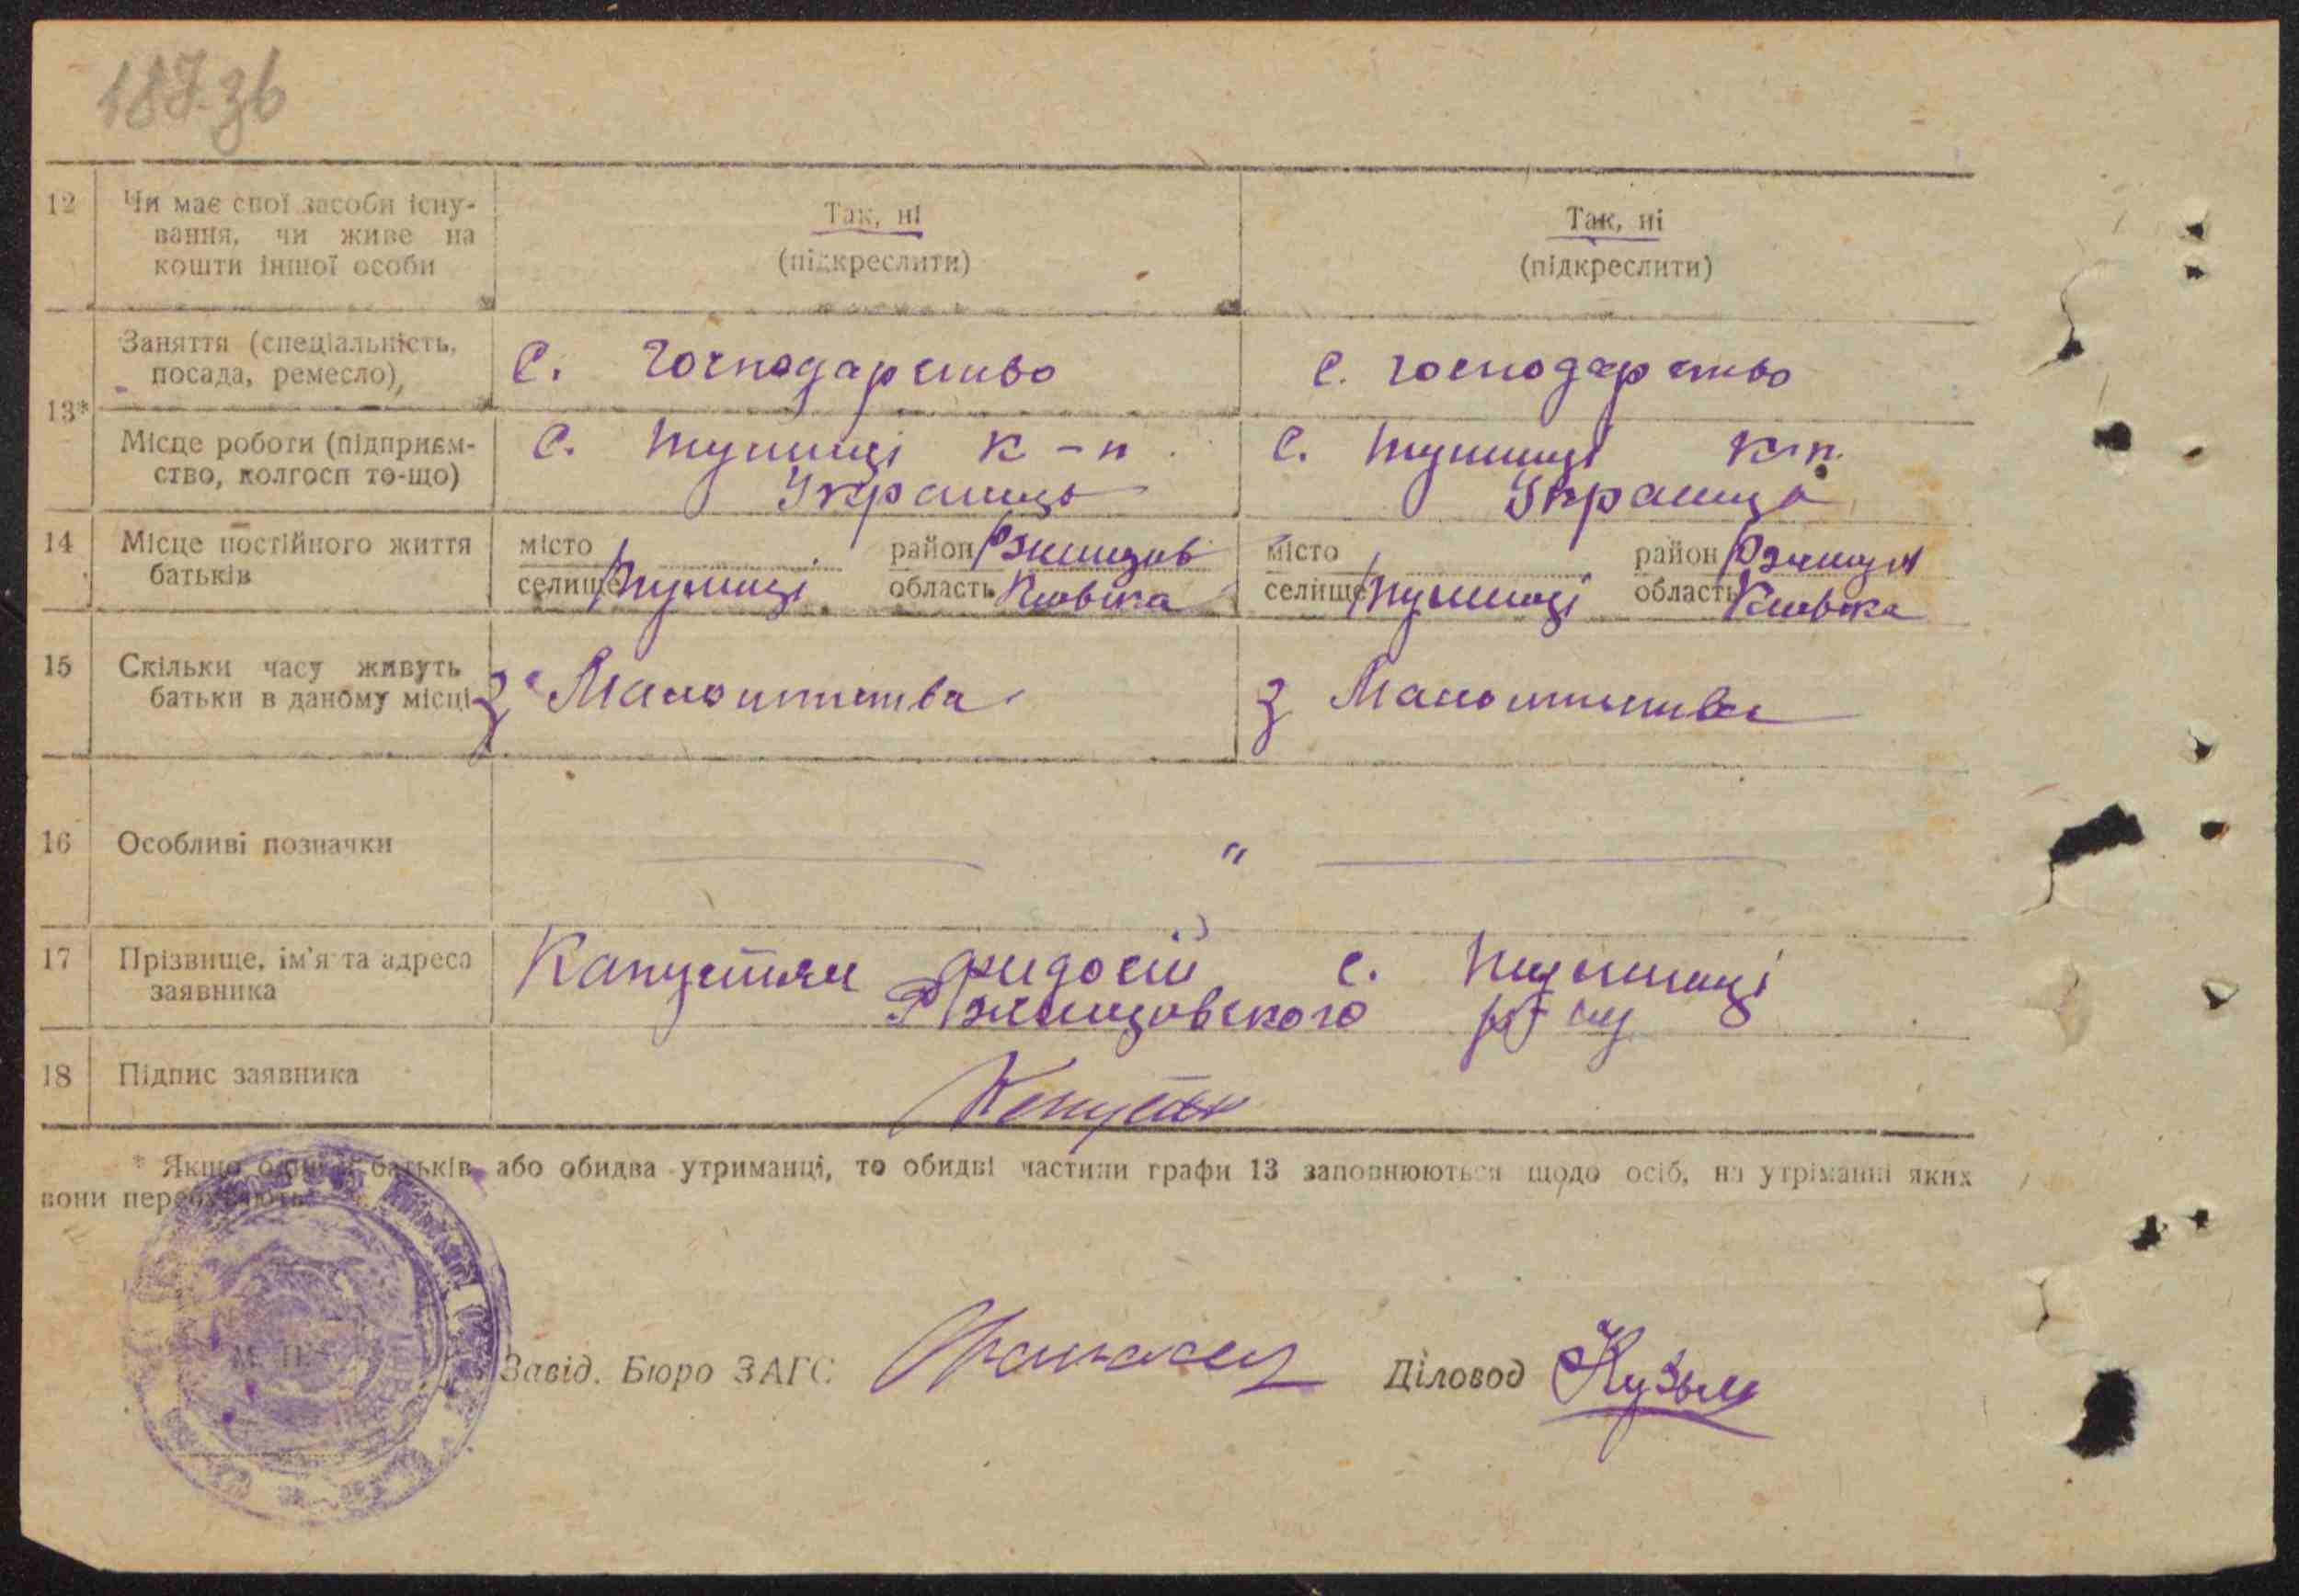 187 зв
12 Чи має свої засоби існу-
вання, чи живе на
кошти іншої особи
Так, ні
(підкреслити)
Так, ні
(підкреслити)
13*
Заняття (спеціальність,
посада, ремесло)
С. господарство
С. господарство
Місце роботи (підприєм-
ство, колгосп то-що)
С. Пушниці к-п
С. Пушниці к-п
14 Місце постійного життя
батьків
місто район
селище Пушниці область Київска
місто район
селище Пушниці область Київска
15 Скільки часу живуть
батьки в даному місці
З
З
16 Особливі позначки
"
17 Прізвище, ім'я та адреса
заявника
Капустян Фидосій с. Пушниці
Ржищовского р-ну
18 Підпис заявника
Капустян
* Якщо один з батьків або обидва утриманці, то обидві частини графи 13 заповнюються щодо осіб, на утріманні яких
вони перебувають
М. П.
Завід. Бюро ЗАГС
Діловод